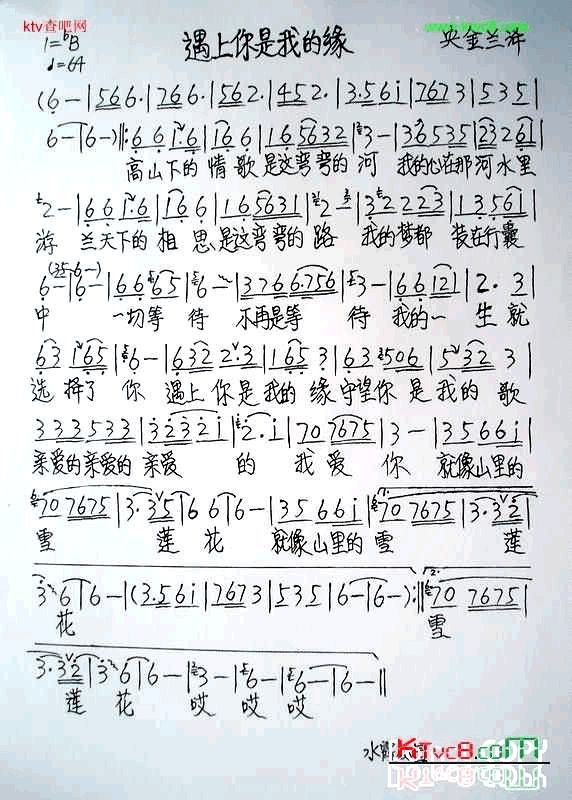 ktv查吧网
www.ktvc8.com
1=bB
♩=64
遇上你是我的缘
央金兰泽
(6 - | 5 6 6· | 7 6 6· | 5 6 2· | 4 5 2· | 3·5 6 i | 7 6 7 3 | 5 3 5 |
6 - | 6 - ) |: 6 6 1·6 | 1 6 6 | 1 6 5 6 3 2 | 3 - | 3 6 5 3 5 | 2 3 2 6 1 |
高山下的 情歌 是这弯弯的 河 我的心在那河水里
2 - | 6 6 1·6 | 1 6 6 | 1 6 5 6 3 1 | 2 - | 3 2 2 2 3 | 1 3 5 6 1 |
游 兰天下的 相思 是这弯弯的 路 我的梦都 装在行囊
6 (3 5 | 6 - ) | 6 - | 6 6 6 5 | 6 - | 3 7 6 6 7 5 6 | 3 - | 6 6 1 2 1 | 2· 3 |
中 一切等 待 不再是等 待 我的一 生 就
6 3 1 6 5 | 6 - | 6 3 2 2 3 | 1 6 5 3 | 6 3 5 0 6 | 5 3 2 3 |
选择了 你 遇上你是我的缘 守望你是我的 歌
3 3 3 5 3 3 | 3 2 3 2 i | 2· i | 7 0 7 6 7 5 | 3 - | 3 5 6 6 i |
亲爱的亲爱的 亲爱 的 我爱 你 就像山里的
7 0 7 6 7 5 | 3·3 5 | 6 6 | 6 - | 3 5 6 6 i | 7 0 7 6 7 5 | 3·3 2 |
雪 莲 花 就像山里的 雪 莲
3 6 | 6 - | (3·5 6 i | 7 6 7 3 | 5 3 5 | 6 - | 6 - ) :| 2. 7 0 7 6 7 5 |
花 雪
3·3 2 | 3 6 | 6 - | 3 - | 6 - | 6 - | 6 - ||
莲 花 哎 哎 哎
KTvc8.com
COPY